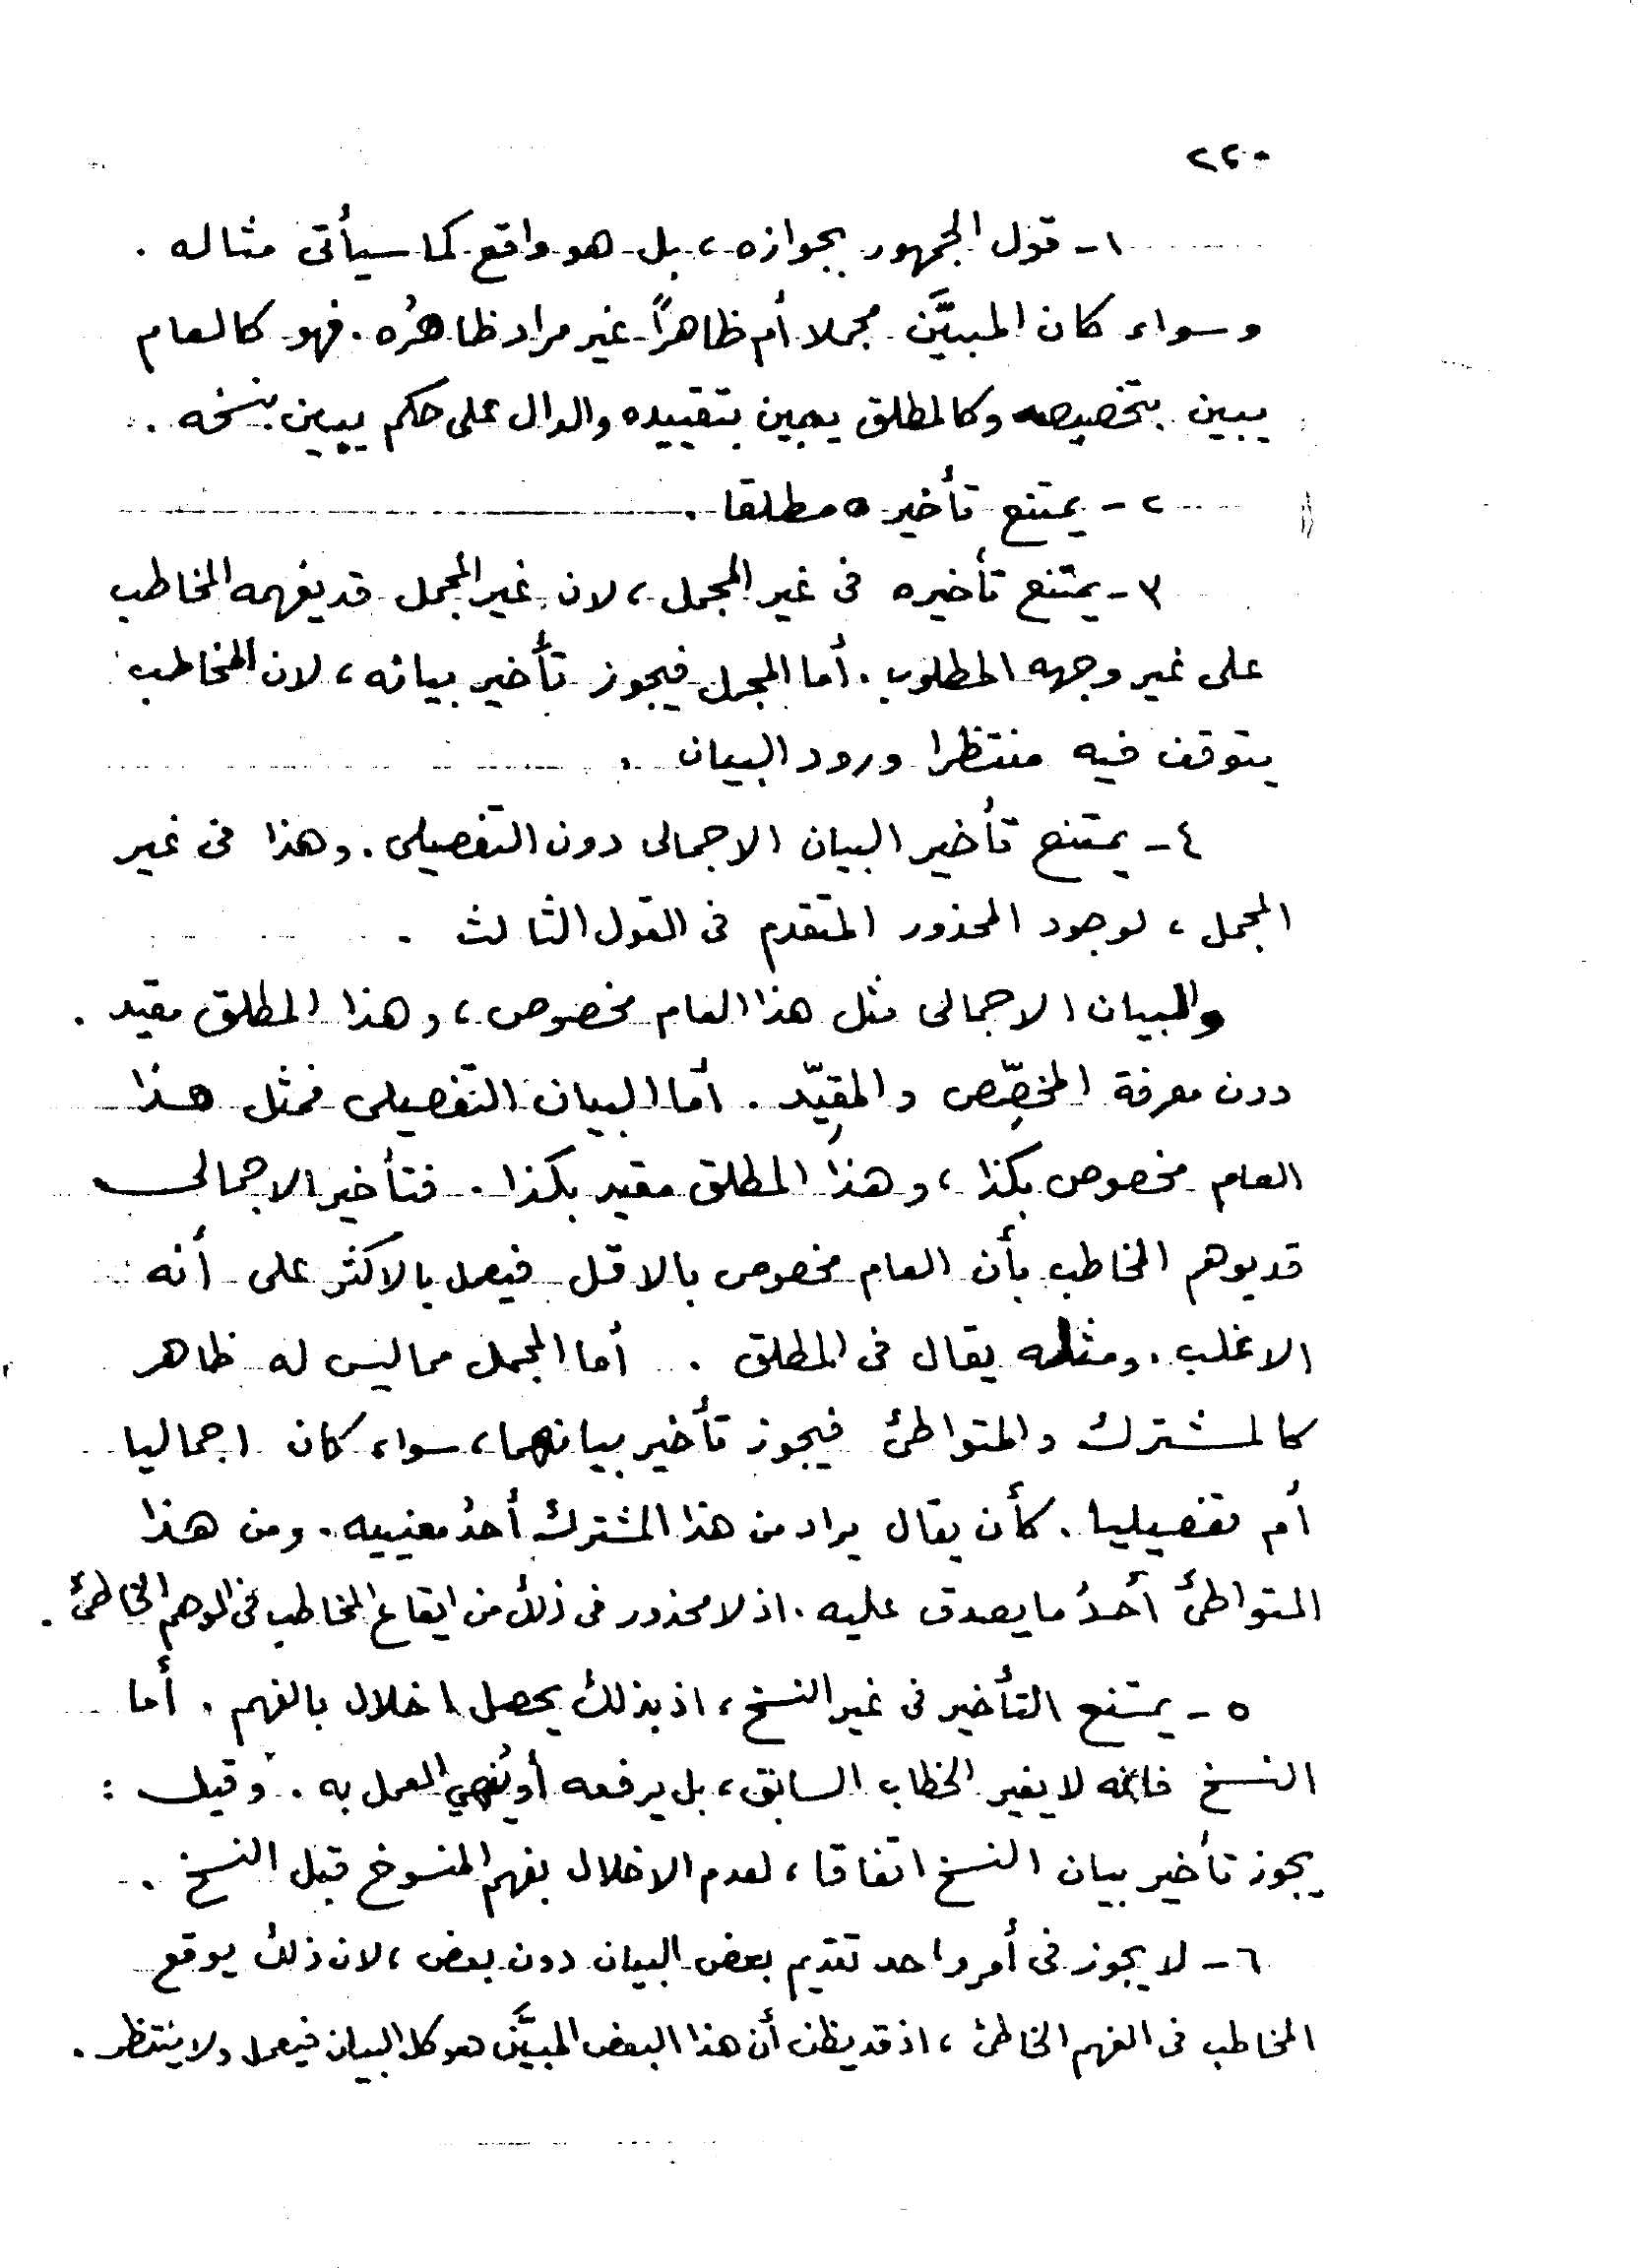 ٢٢٠
١- قول الجمهور بجوازه، بل هو واقع كما سيأتى مثاله .
وسواء كان المبيَّن مجملا أم ظاهراً غير مراد ظاهرُه . فهو كالعام
يبين بتخصيصه وكالمطلق يبين بتقييده والدال على حكم يبين بنسخه .
٢- يمتنع تأخيره مطلقا .
٣- يمتنع تأخيره فى غير المجمل، لان غير المجمل قد يفهمه المخاطب
على غير وجهه المطلوب . أما المجمل فيجوز تأخير بيانه، لان المخاطب
يتوقف فيه منتظرا ورود البيان .
٤- يمتنع تأخير البيان الاجمالى دون التفصيلى . وهذا فى غير
المجمل، لوجود المحذور المتقدم فى القول الثالث .
والبيان الاجمالى مثل هذا العام مخصوص، وهذا المطلق مقيد .
دون معرفة المخصِّص والمقيِّد . أما البيان التفصيلى فمثل هذا
العام مخصوص بكذا، وهذا المطلق مقيد بكذا . فتأخير الاجمالى
قد يوهم المخاطب بأن العام مخصوص بالاقل فيعمل بالاكثر على أنه
الاغلب . ومثله يقال فى المطلق . أما المجمل مما ليس له ظاهر
كالمشترك والمتواطئ فيجوز تأخير بيانهما، سواء كان اجماليا
أم تفصيليا . كأن يقال يراد من هذا المشترك أحدُ معنييه . ومن هذا
المتواطئ أحدُ ما يصدق عليه . اذ لا محذور فى ذلك من ايقاع المخاطب فى الوهم الخاطئ .
٥- يمتنع التأخير فى غير النسخ، اذ بذلك يحصل اخلال بالفهم . أما
النسخ فانه لا يغير الخطاب السابق، بل يرفعه أو يُنهي العمل به . وقيل :
يجوز تأخير بيان النسخ اتفاقا، لعدم الاخلال بفهم المنسوخ قبل النسخ .
٦- لا يجوز فى أمر واحد تقديم بعض البيان دون بعض، لان ذلك يوقع
المخاطب فى الفهم الخاطئ، اذ قد يظن أن هذا البعض المبيَّن هو كل البيان فيعمل ولا ينتظر .